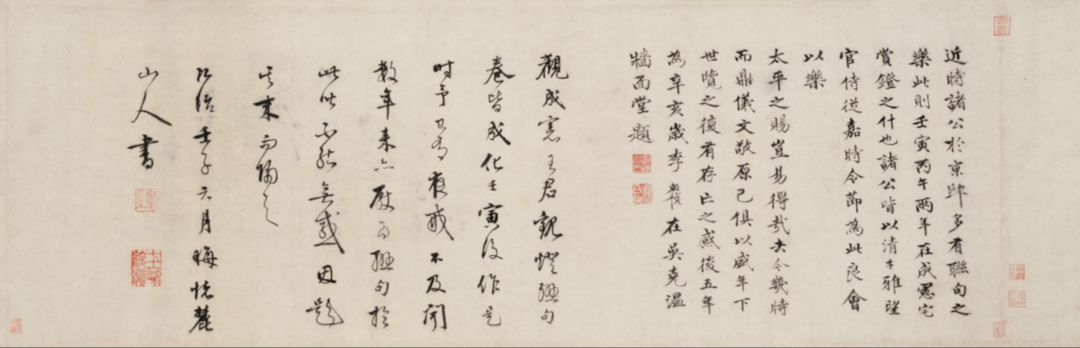 近時諸公於京邸多有聯句之
樂此則壬寅丙午兩年在成憲宅
賞鐙之什也諸公皆以清才雅望
官侍從嘉時令節為此良會
以樂
太平之賜豈易得哉去今幾時
而鼎儀文敬原已俱以盛年下
世覽之復有存亡之感後五年
為辛亥歲李在吳堯溫
牆面堂題
觀成憲王君觀燈聯句
卷皆成化壬寅後作是
時予有戒不及聞
數年來亦厭而聯句於
此
不能無感因題
其末而歸之
弘治壬子六月晦
山人書